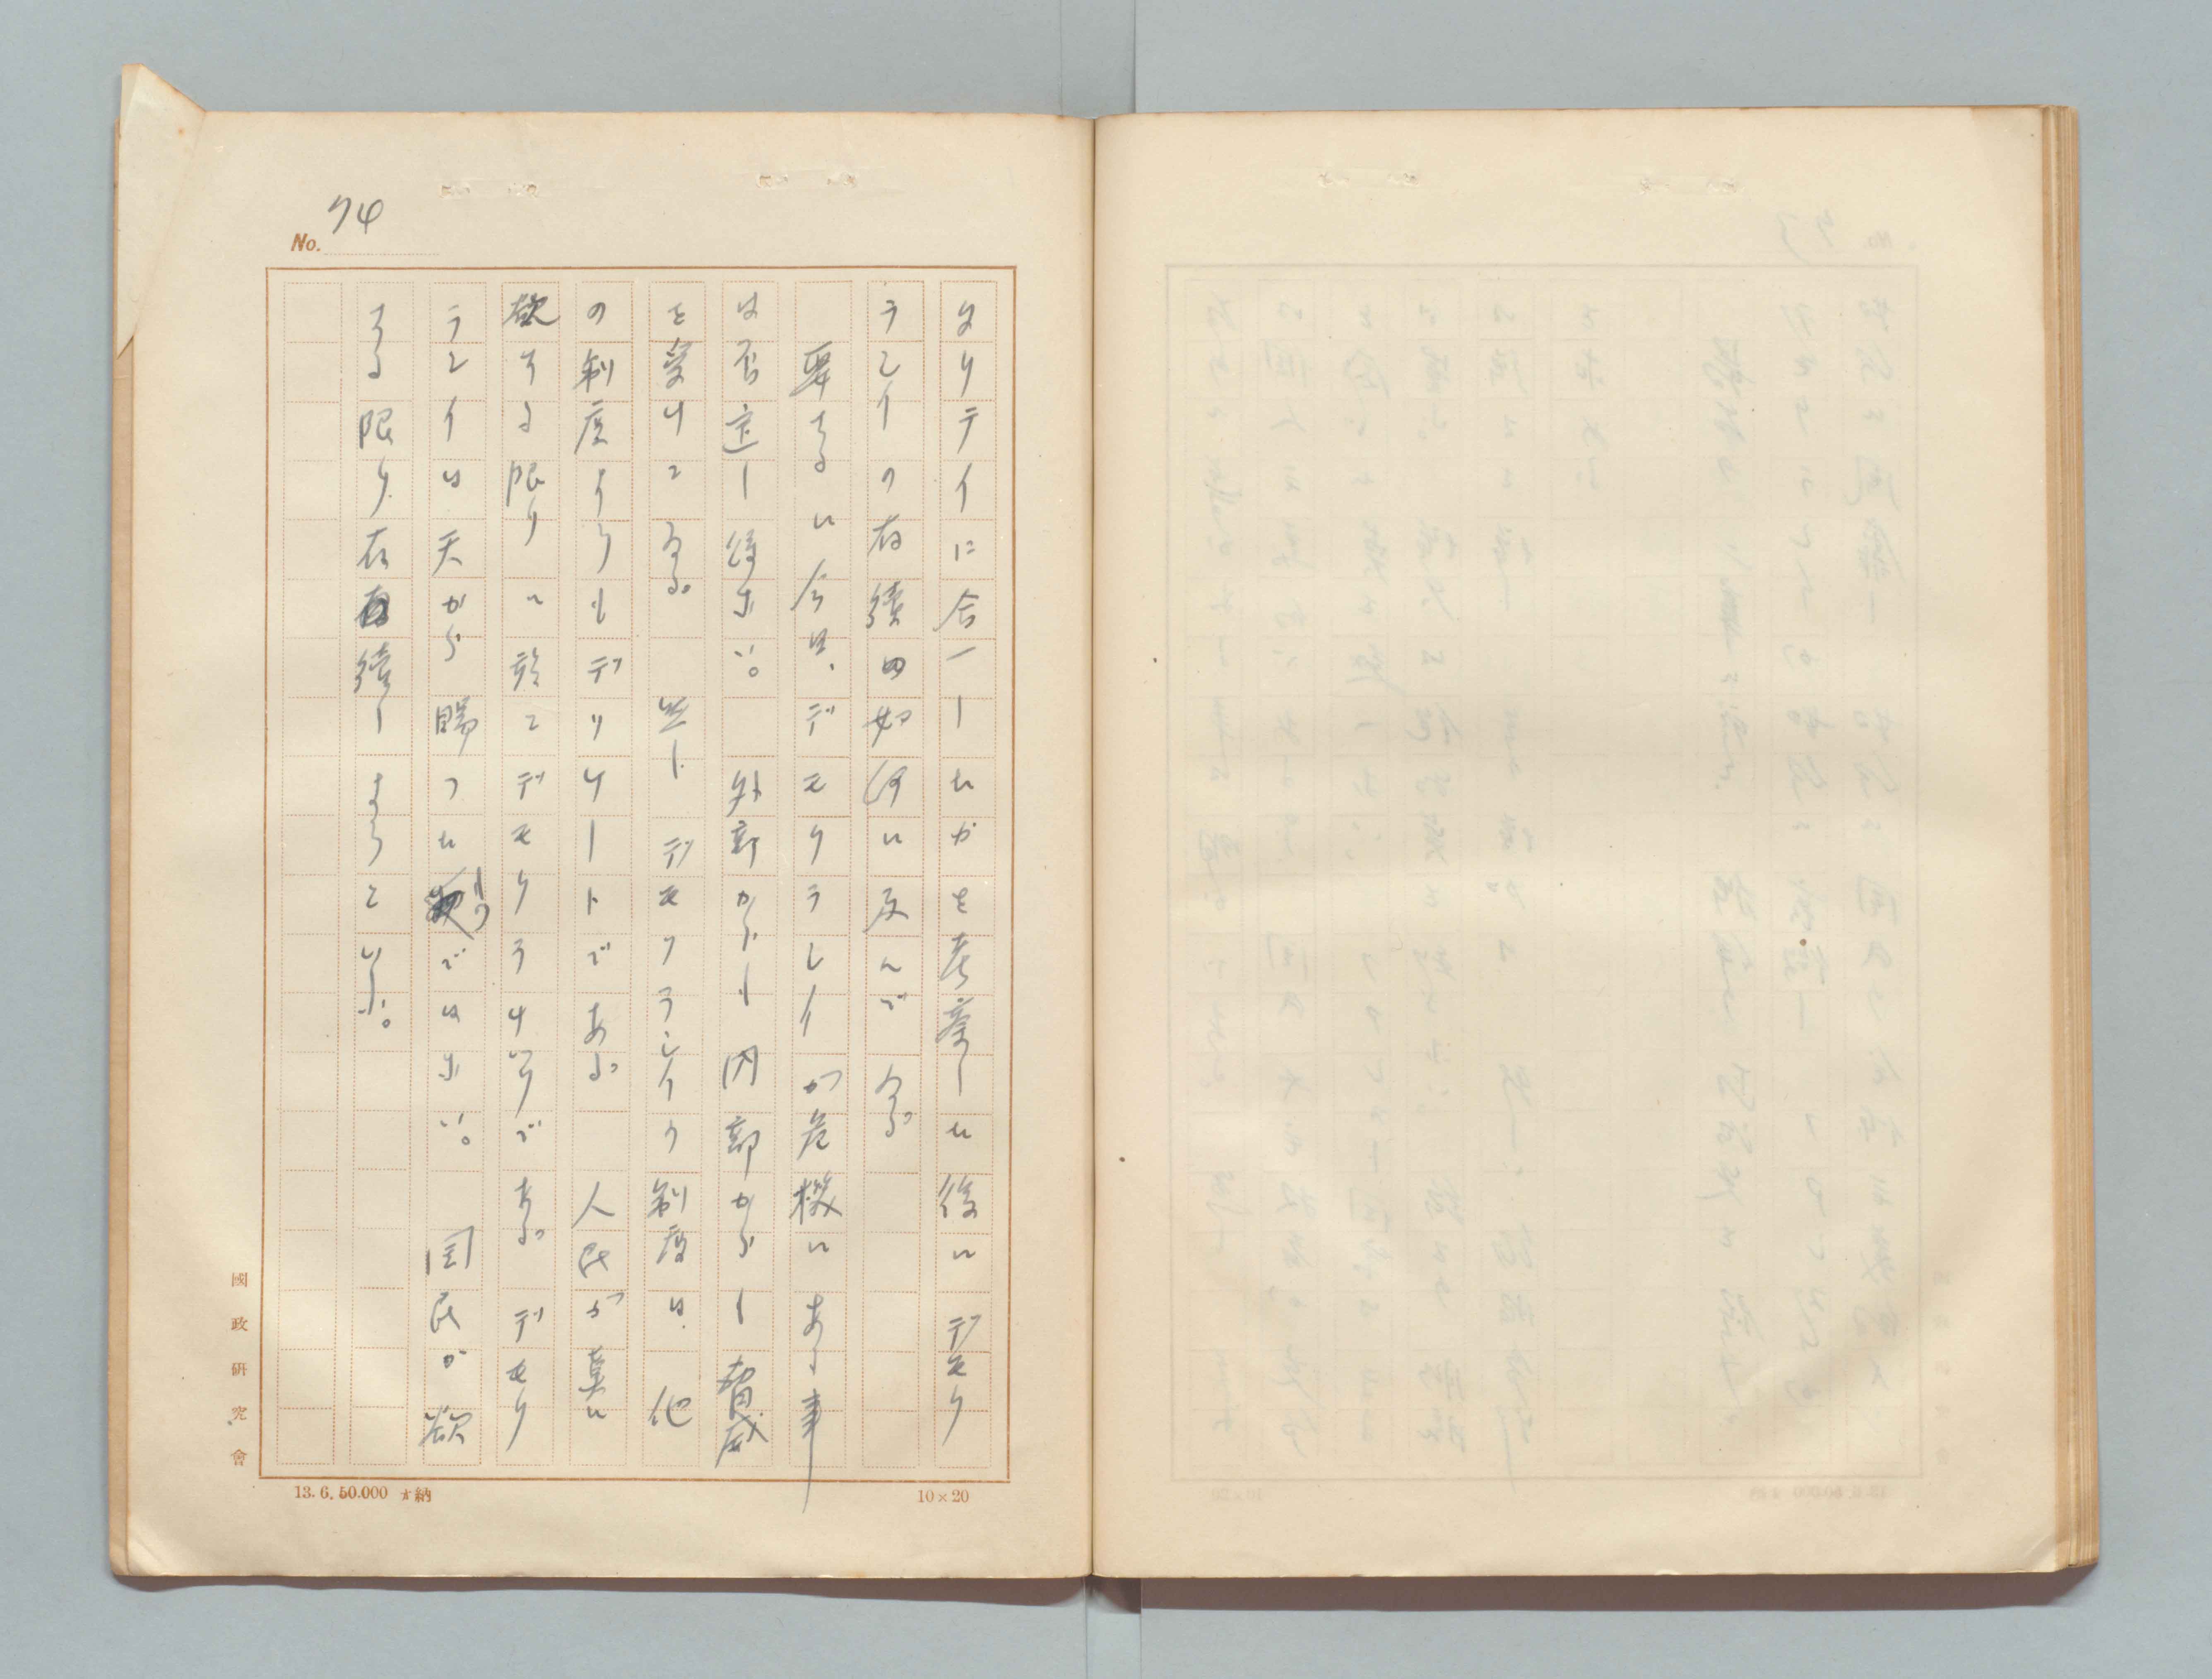 No. 74
タリテイに合一したかを考察した後にデモク
ラシイの存続の如何に及んでゐる。
要するに今日、デモクラシイが危機にある事
は否定し得ない。 外部からも内部からも脅威
を受けてゐる。 然しデモクラシイの制度は、他
の制度よりもデリケートである。 人民が真に
欲する限りに於てデモクラ である。 デモク
ラシイは天から賜つたものではない。 国民が欲
する限り存続しようといふ。
國政研究會
13.6.50.000 納
10×20